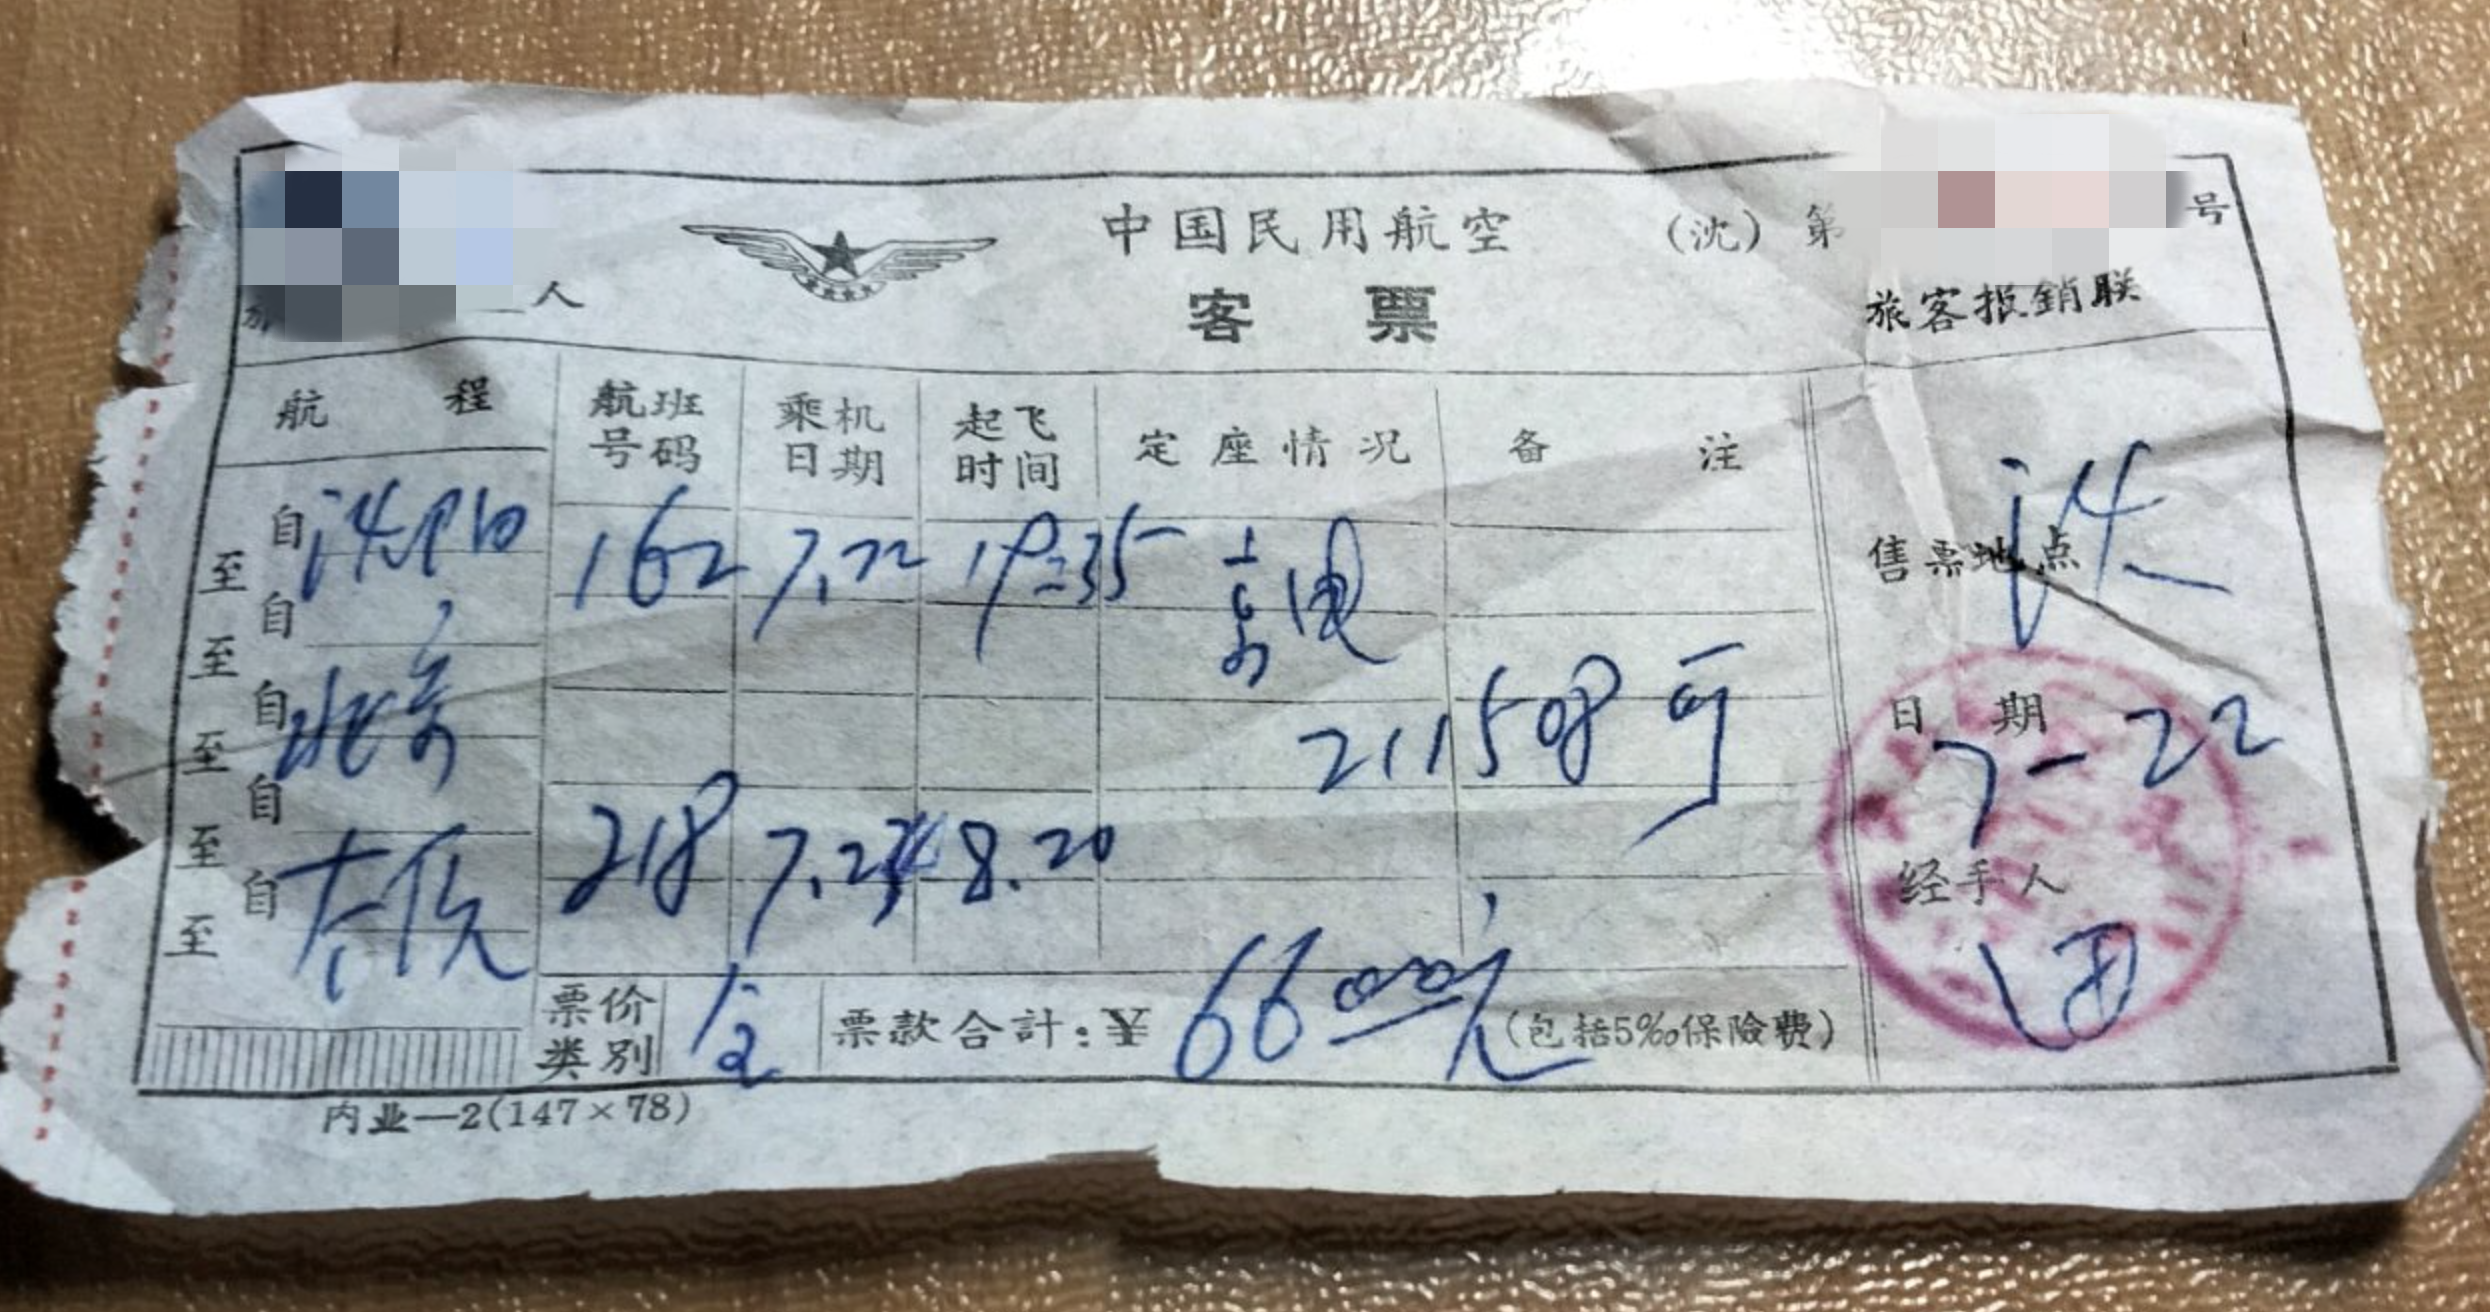 中国民用航空 (沈) 第 号
人 客票 旅客报銷联
航程 航班号码 乘机日期 起飞时间 定座情况 备注
自 沈阳 162 7.22 19:35 京电
至 自
售票地点 沈
至 自 北京 211508 可
日期 7-22
至 自
至 自 太原 218 7.23 8.20
经手人
至
票价类别 1/2 票款合計:¥ 66.00元 (包括5‰保險费)
内业—2(147×78)